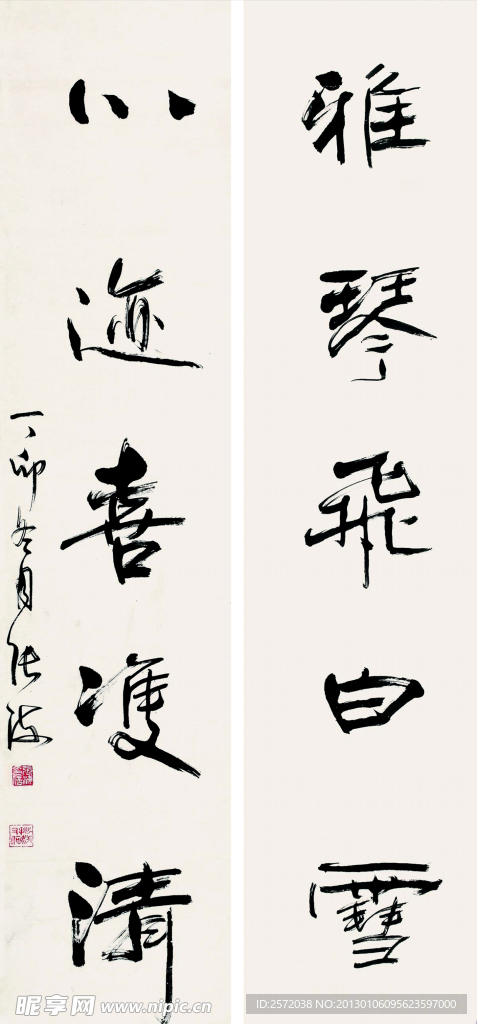 雅琴飛白雪
心迹喜双清
丁卯冬月張海
昵享网 www.nipic.cn
ID:2572038 NO:20130106095623597000